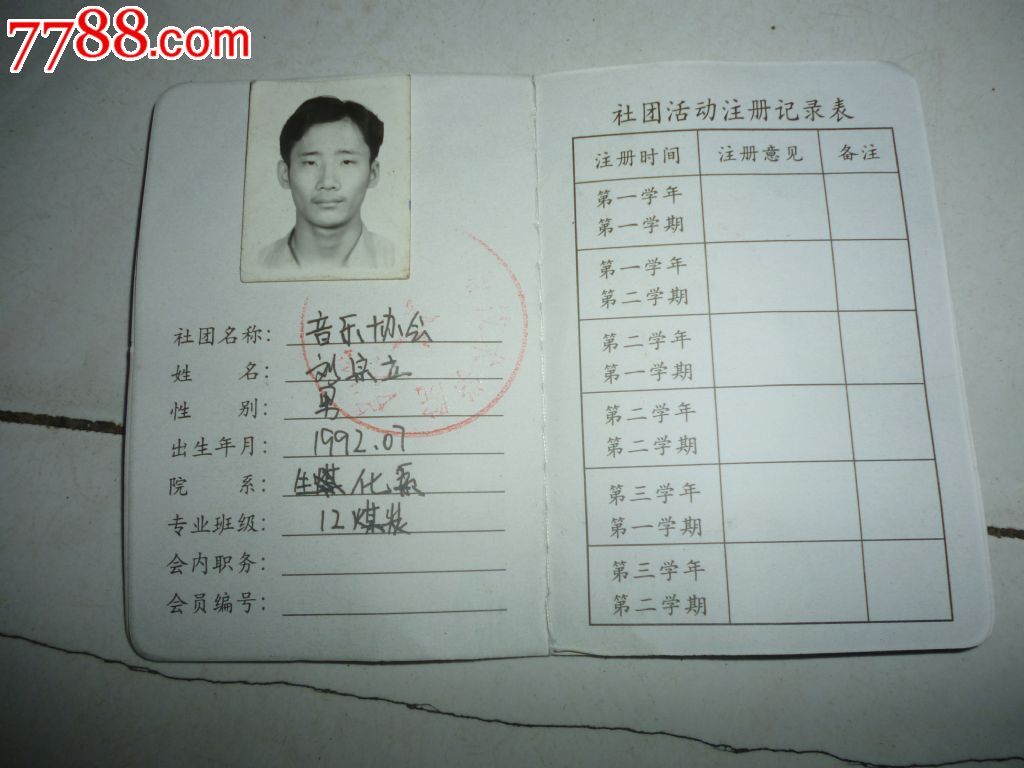 7788.com
社团名称: 音乐协会
姓 名: 刘宗立
性 别: 男
出生年月: 1992.07
院 系: 煤化系
专业班级: 12煤炭
会内职务:
会员编号:
社团活动注册记录表
注册时间 注册意见 备注
第一学年
第一学期
第一学年
第二学期
第二学年
第一学期
第二学年
第二学期
第三学年
第一学期
第三学年
第二学期